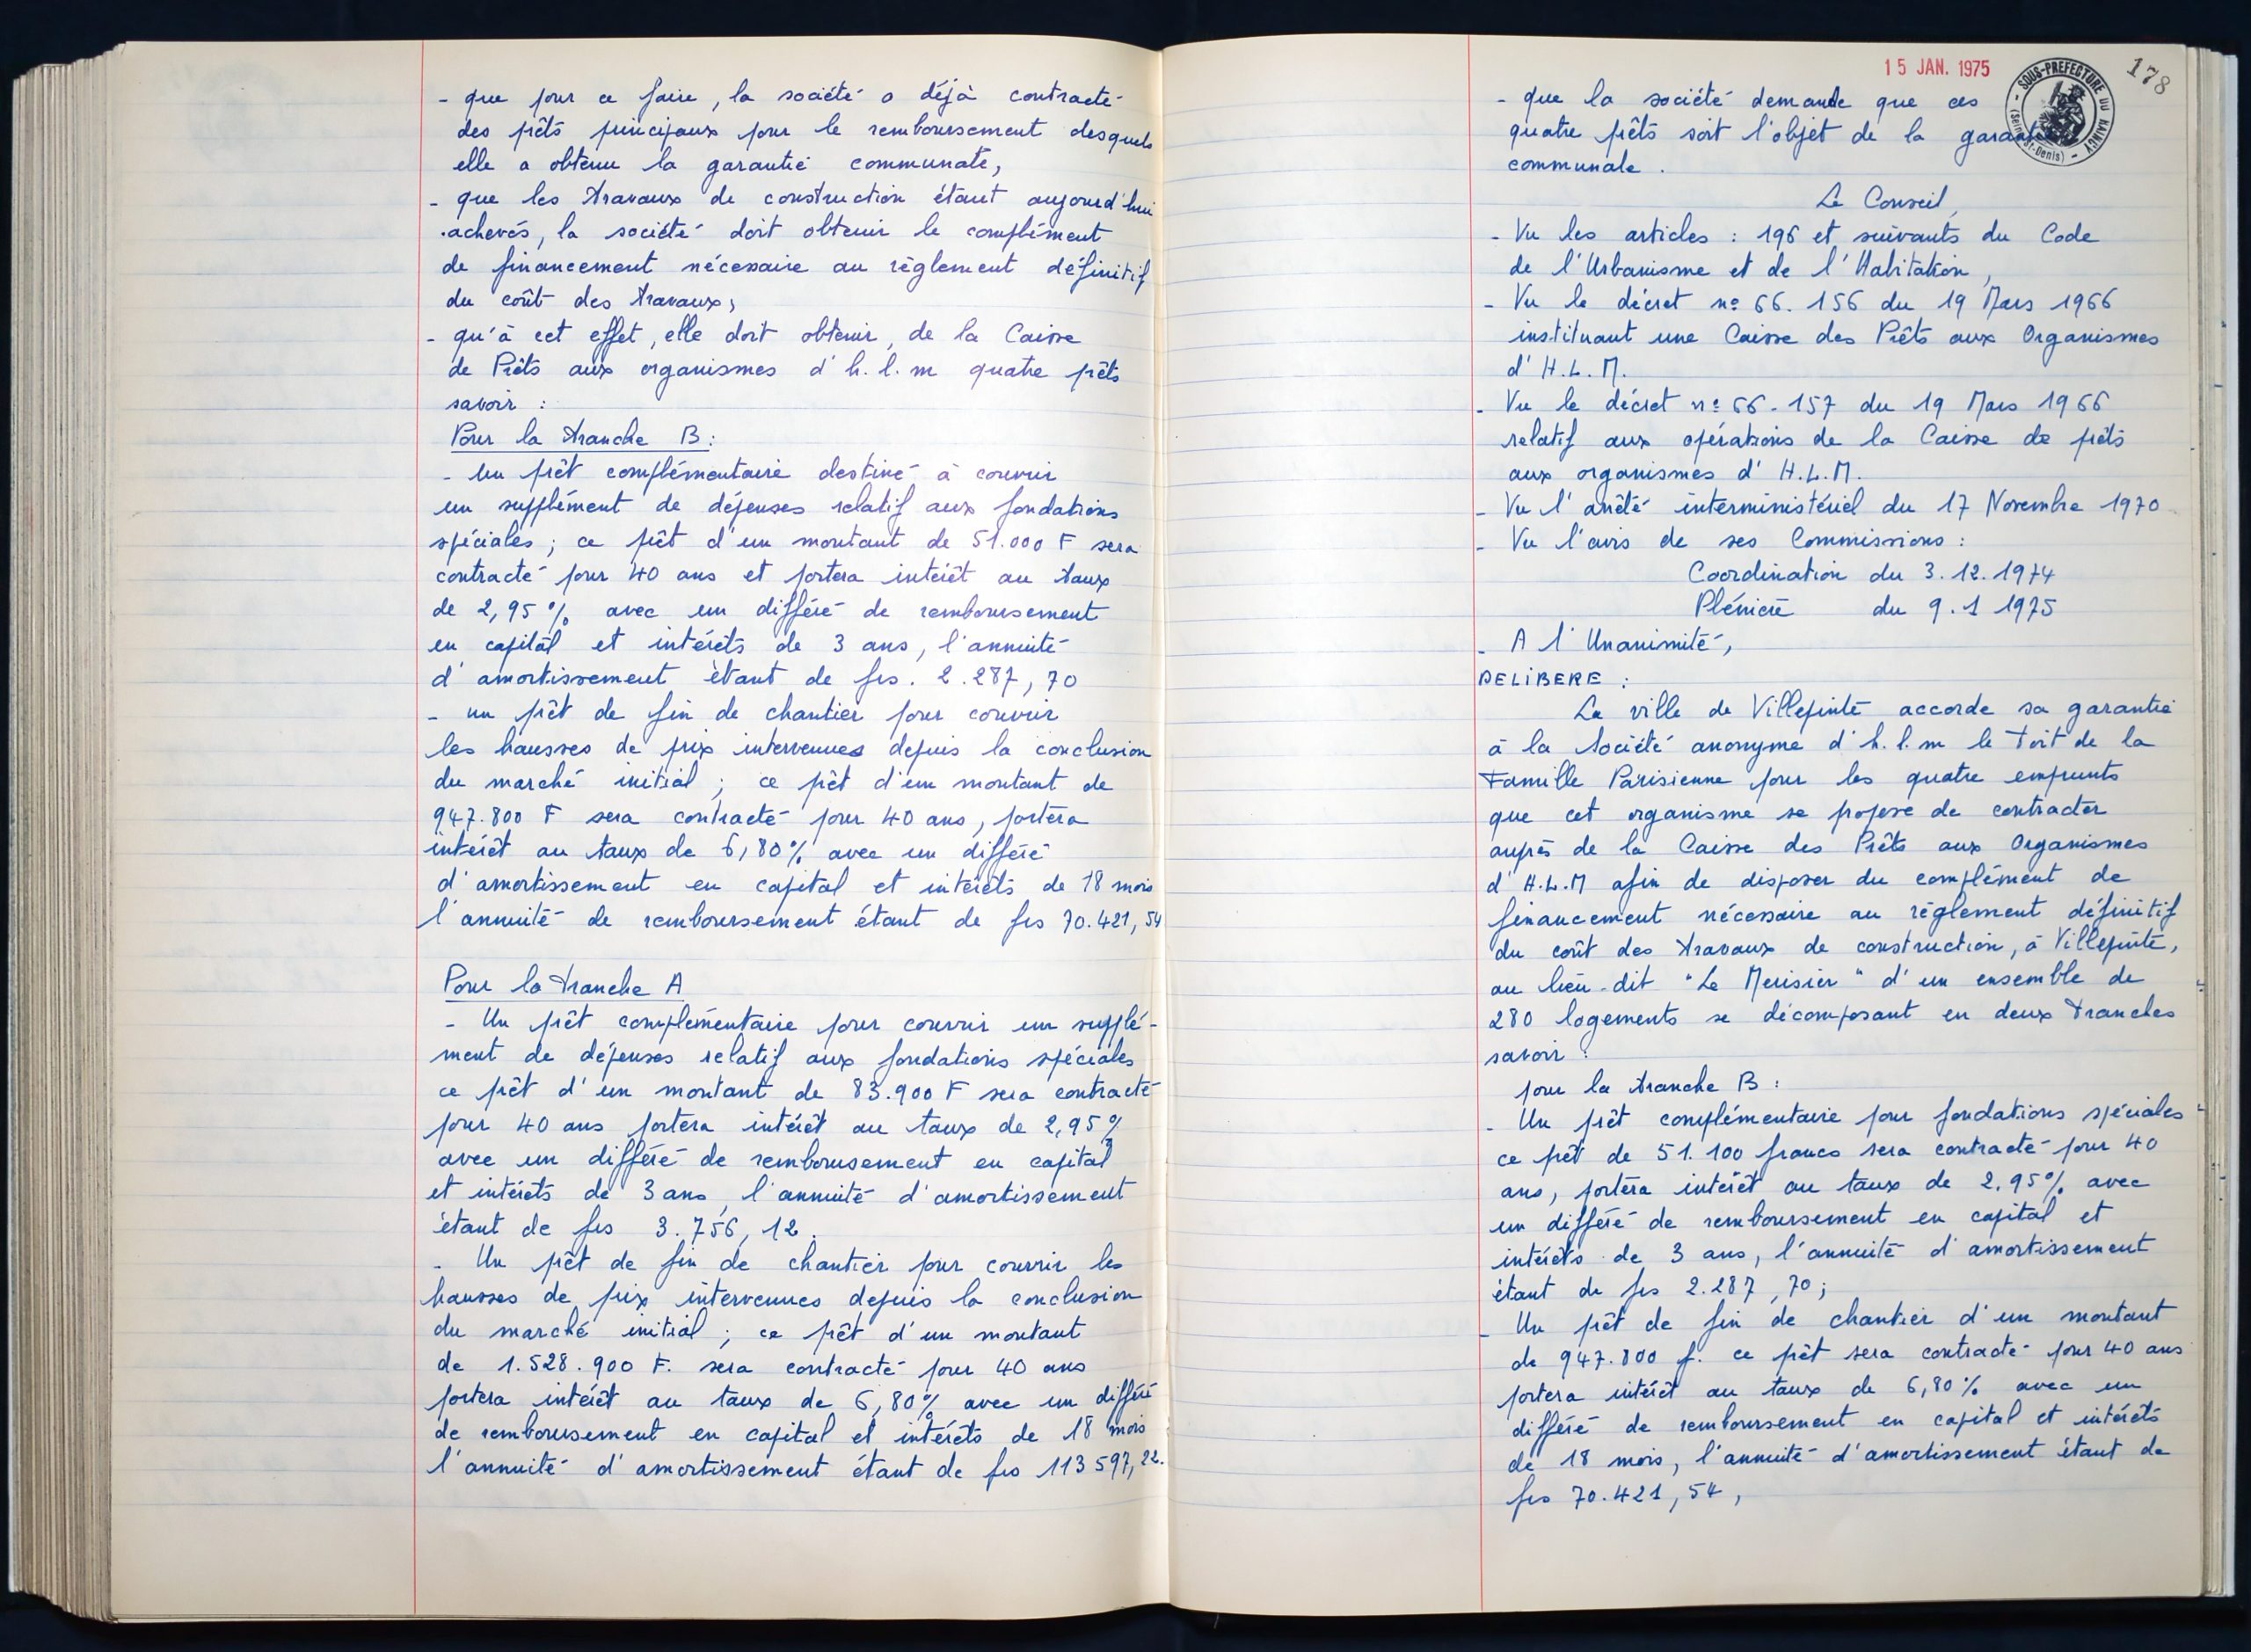 - que pour ce faire, la société a déjà contracté
des prêts principaux pour le remboursement desquels
elle a obtenu la garantie communale,
- que les travaux de construction étant aujourd'hui
achevés, la société doit obtenir le complément
de financement nécessaire au règlement définitif
du coût des travaux,
- qu'à cet effet, elle doit obtenir, de la Caisse
de Prêts aux organismes d'h.l.m quatre prêts
savoir :
Pour la tranche B :
- Un prêt complémentaire destiné à couvrir
un supplément de dépenses relatif aux fondations
spéciales ; ce prêt d'un montant de 51.000 F sera
contracté pour 40 ans et portera intérêt au taux
de 2,95 % avec un différé de remboursement
en capital et intérêts de 3 ans, l'annuité
d'amortissement étant de frs. 2.287,70
- un prêt de fin de chantier pour couvrir
les hausses de prix intervenues depuis la conclusion
du marché initial ; ce prêt d'un montant de
947.800 F sera contracté pour 40 ans, portera
intérêt au taux de 6,80% avec un différé
d'amortissement en capital et intérêts de 18 mois
l'annuité de remboursement étant de frs 70.421,54
Pour la tranche A
- Un prêt complémentaire pour couvrir un supplé-
ment de dépenses relatif aux fondations spéciales
ce prêt d'un montant de 83.900 F sera contracté
pour 40 ans portera intérêt au taux de 2,95%
avec un différé de remboursement en capital
et intérêts de 3 ans, l'annuité d'amortissement
étant de frs 3.756,12.
- Un prêt de fin de chantier pour couvrir les
hausses de prix intervenues depuis la conclusion
du marché initial ; ce prêt d'un montant
de 1.528.900 F. sera contracté pour 40 ans
portera intérêt au taux de 6,80% avec un différé
de remboursement en capital et intérêts de 18 mois
l'annuité d'amortissement étant de frs 113 597,22.
15 JAN. 1975
SOUS-PREFECTURE DU RAINCY
(Seine-St-Denis)
178
- que la société demande que ces
quatre prêts soit l'objet de la garantie
communale.
Le Conseil,
- Vu les articles : 196 et suivants du Code
de l'Urbanisme et de l'Habitation,
- Vu le décret nº 66.156 du 19 Mars 1966
instituant une Caisse des Prêts aux Organismes
d'H.L.M.
- Vu le décret nº 66-157 du 19 Mars 1966
relatif aux opérations de la Caisse de prêts
aux organismes d'H.L.M.
- Vu l'arrêté interministériel du 17 Novembre 1970
- Vu l'avis de ses Commissions :
Coordination du 3.12.1974
Plénière du 9.1 1975
- A l'Unanimité,
DELIBERE :
La ville de Villepinte accorde sa garantie
à la Société anonyme d'h.l.m le Toit de la
Famille Parisienne pour les quatre emprunts
que cet organisme se propose de contracter
auprès de la Caisse des Prêts aux Organismes
d'H.L.M afin de disposer du complément de
financement nécessaire au règlement définitif
du coût des travaux de construction, à Villepinte,
au lieu-dit "Le Merisier" d'un ensemble de
280 logements se décomposant en deux tranches
savoir :
pour la tranche B :
- Un prêt complémentaire pour fondations spéciales
ce prêt de 51.100 francs sera contracté pour 40
ans, portera intérêt au taux de 2,95% avec
un différé de remboursement en capital et
intérêts de 3 ans, l'annuité d'amortissement
étant de frs 2.287,70 ;
- Un prêt de fin de chantier d'un montant
de 947.800 f. ce prêt sera contracté pour 40 ans
portera intérêt au taux de 6,80% avec un
différé de remboursement en capital et intérêts
de 18 mois, l'annuité d'amortissement étant de
frs 70.421,54,